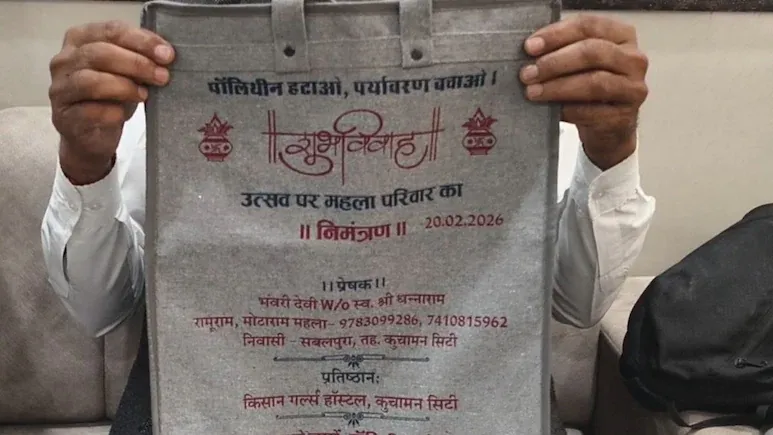 पॉलिथीन हटाओ, पर्यावरण बचाओ।
||शुभविवाह||
उत्सव पर महला परिवार का
॥ निमंत्रण ॥ 20.02.2026
।। प्रेषक ।।
भंवरी देवी W/o स्व. श्री धन्नाराम
रामूराम, मोटाराम महला- 9783099286, 7410815962
निवासी - सबलपुरा, तह. कुचामन सिटी
प्रतिष्ठान:
किसान गर्ल्स हॉस्टल, कुचामन सिटी